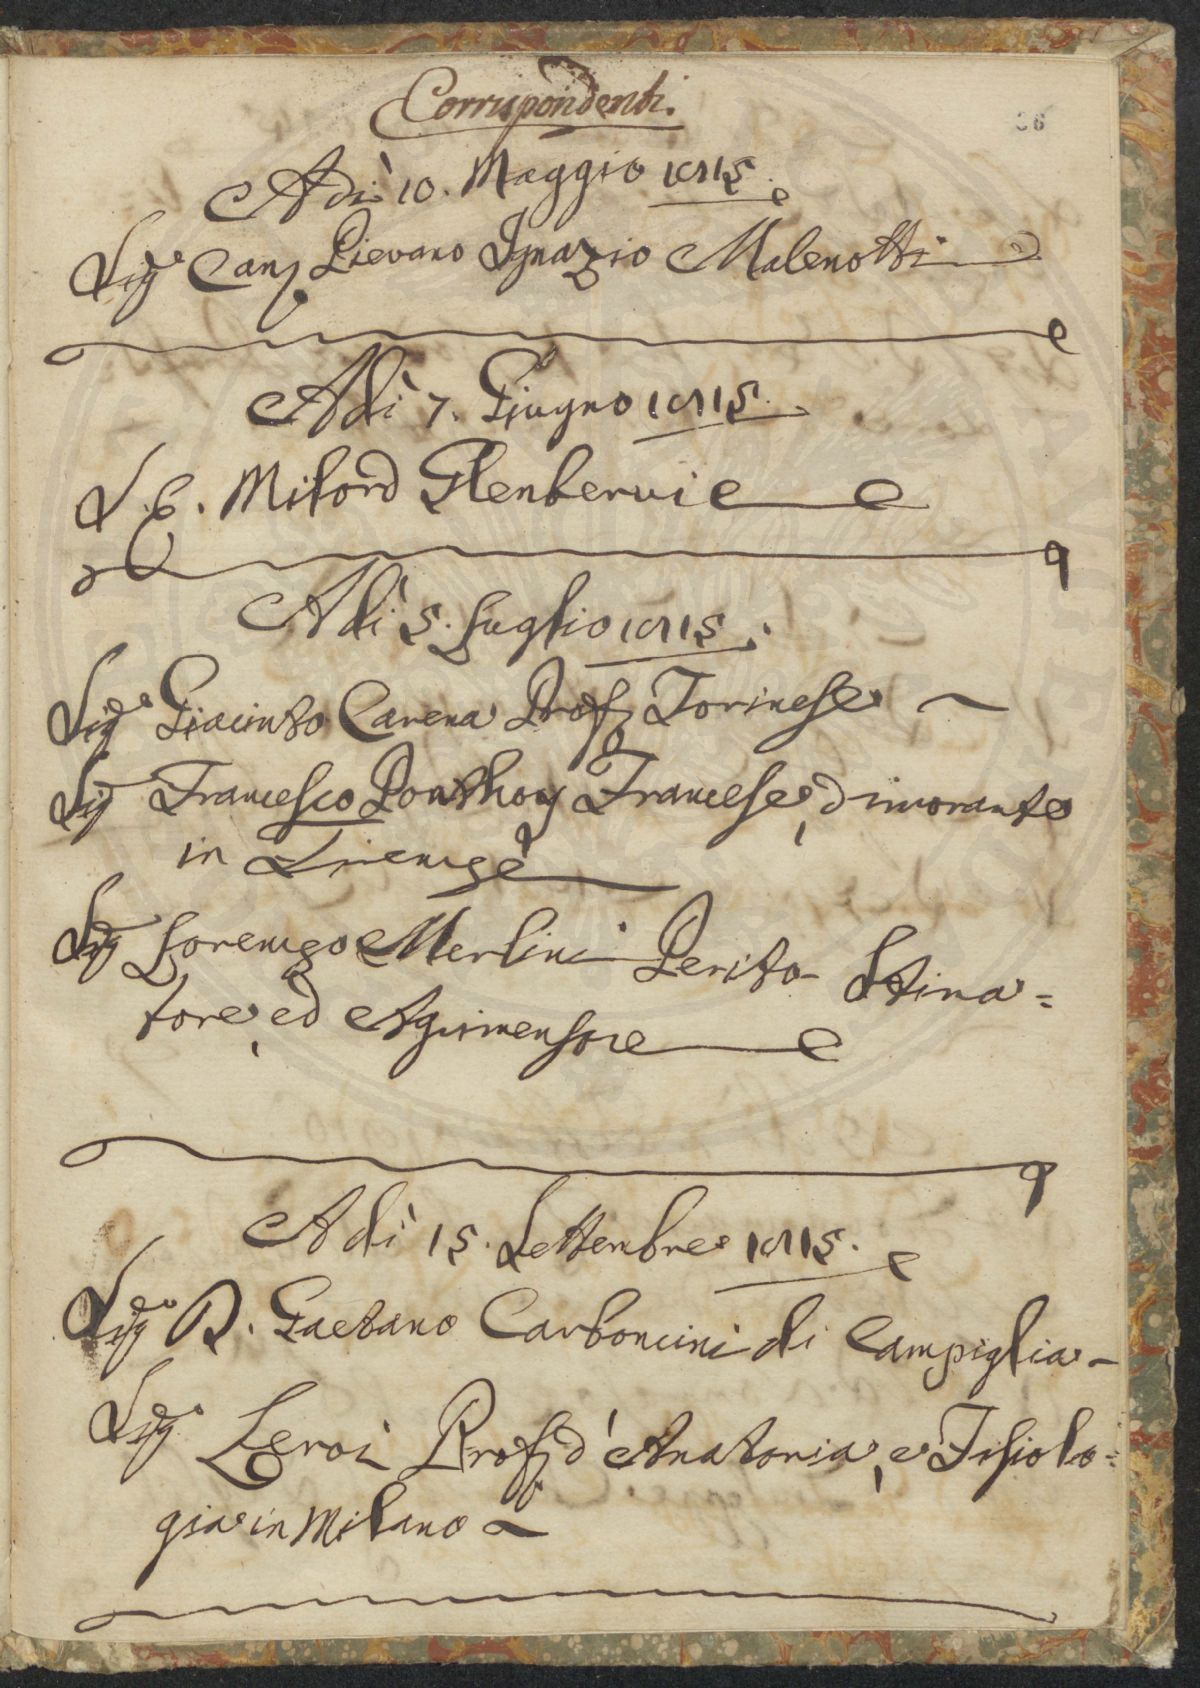 Corrispondenti.
36
Adì 10. Maggio 1815.
Sigr Canco Pievano Ignazio Malenotti
Adì 7. Giugno 1815.
S. E. Milord Glenbervie
Adì 5. Luglio 1815.
Sigr Giacinto Carena Profe Torinese
Sig Francesco Ponthoy Francese, dimorante
in Firenze
Sig Lorenzo Merlini Perito Stima=
tore, ed Agrimensore
Adì 15. Settembre 1815.
Sigr D. Gaetano Carboncini di Campiglia
Sigr Leroi Profe d'Anatomia, e Fisiolo=
gia in Milano